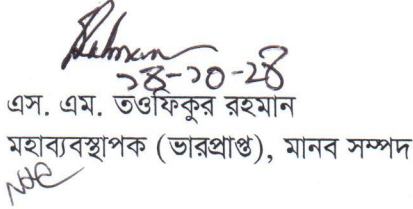 ১৪-১০-২৪
এস. এম. তওফিকুর রহমান
মহাব্যবস্থাপক (ভারপ্রাপ্ত), মানব সম্পদ